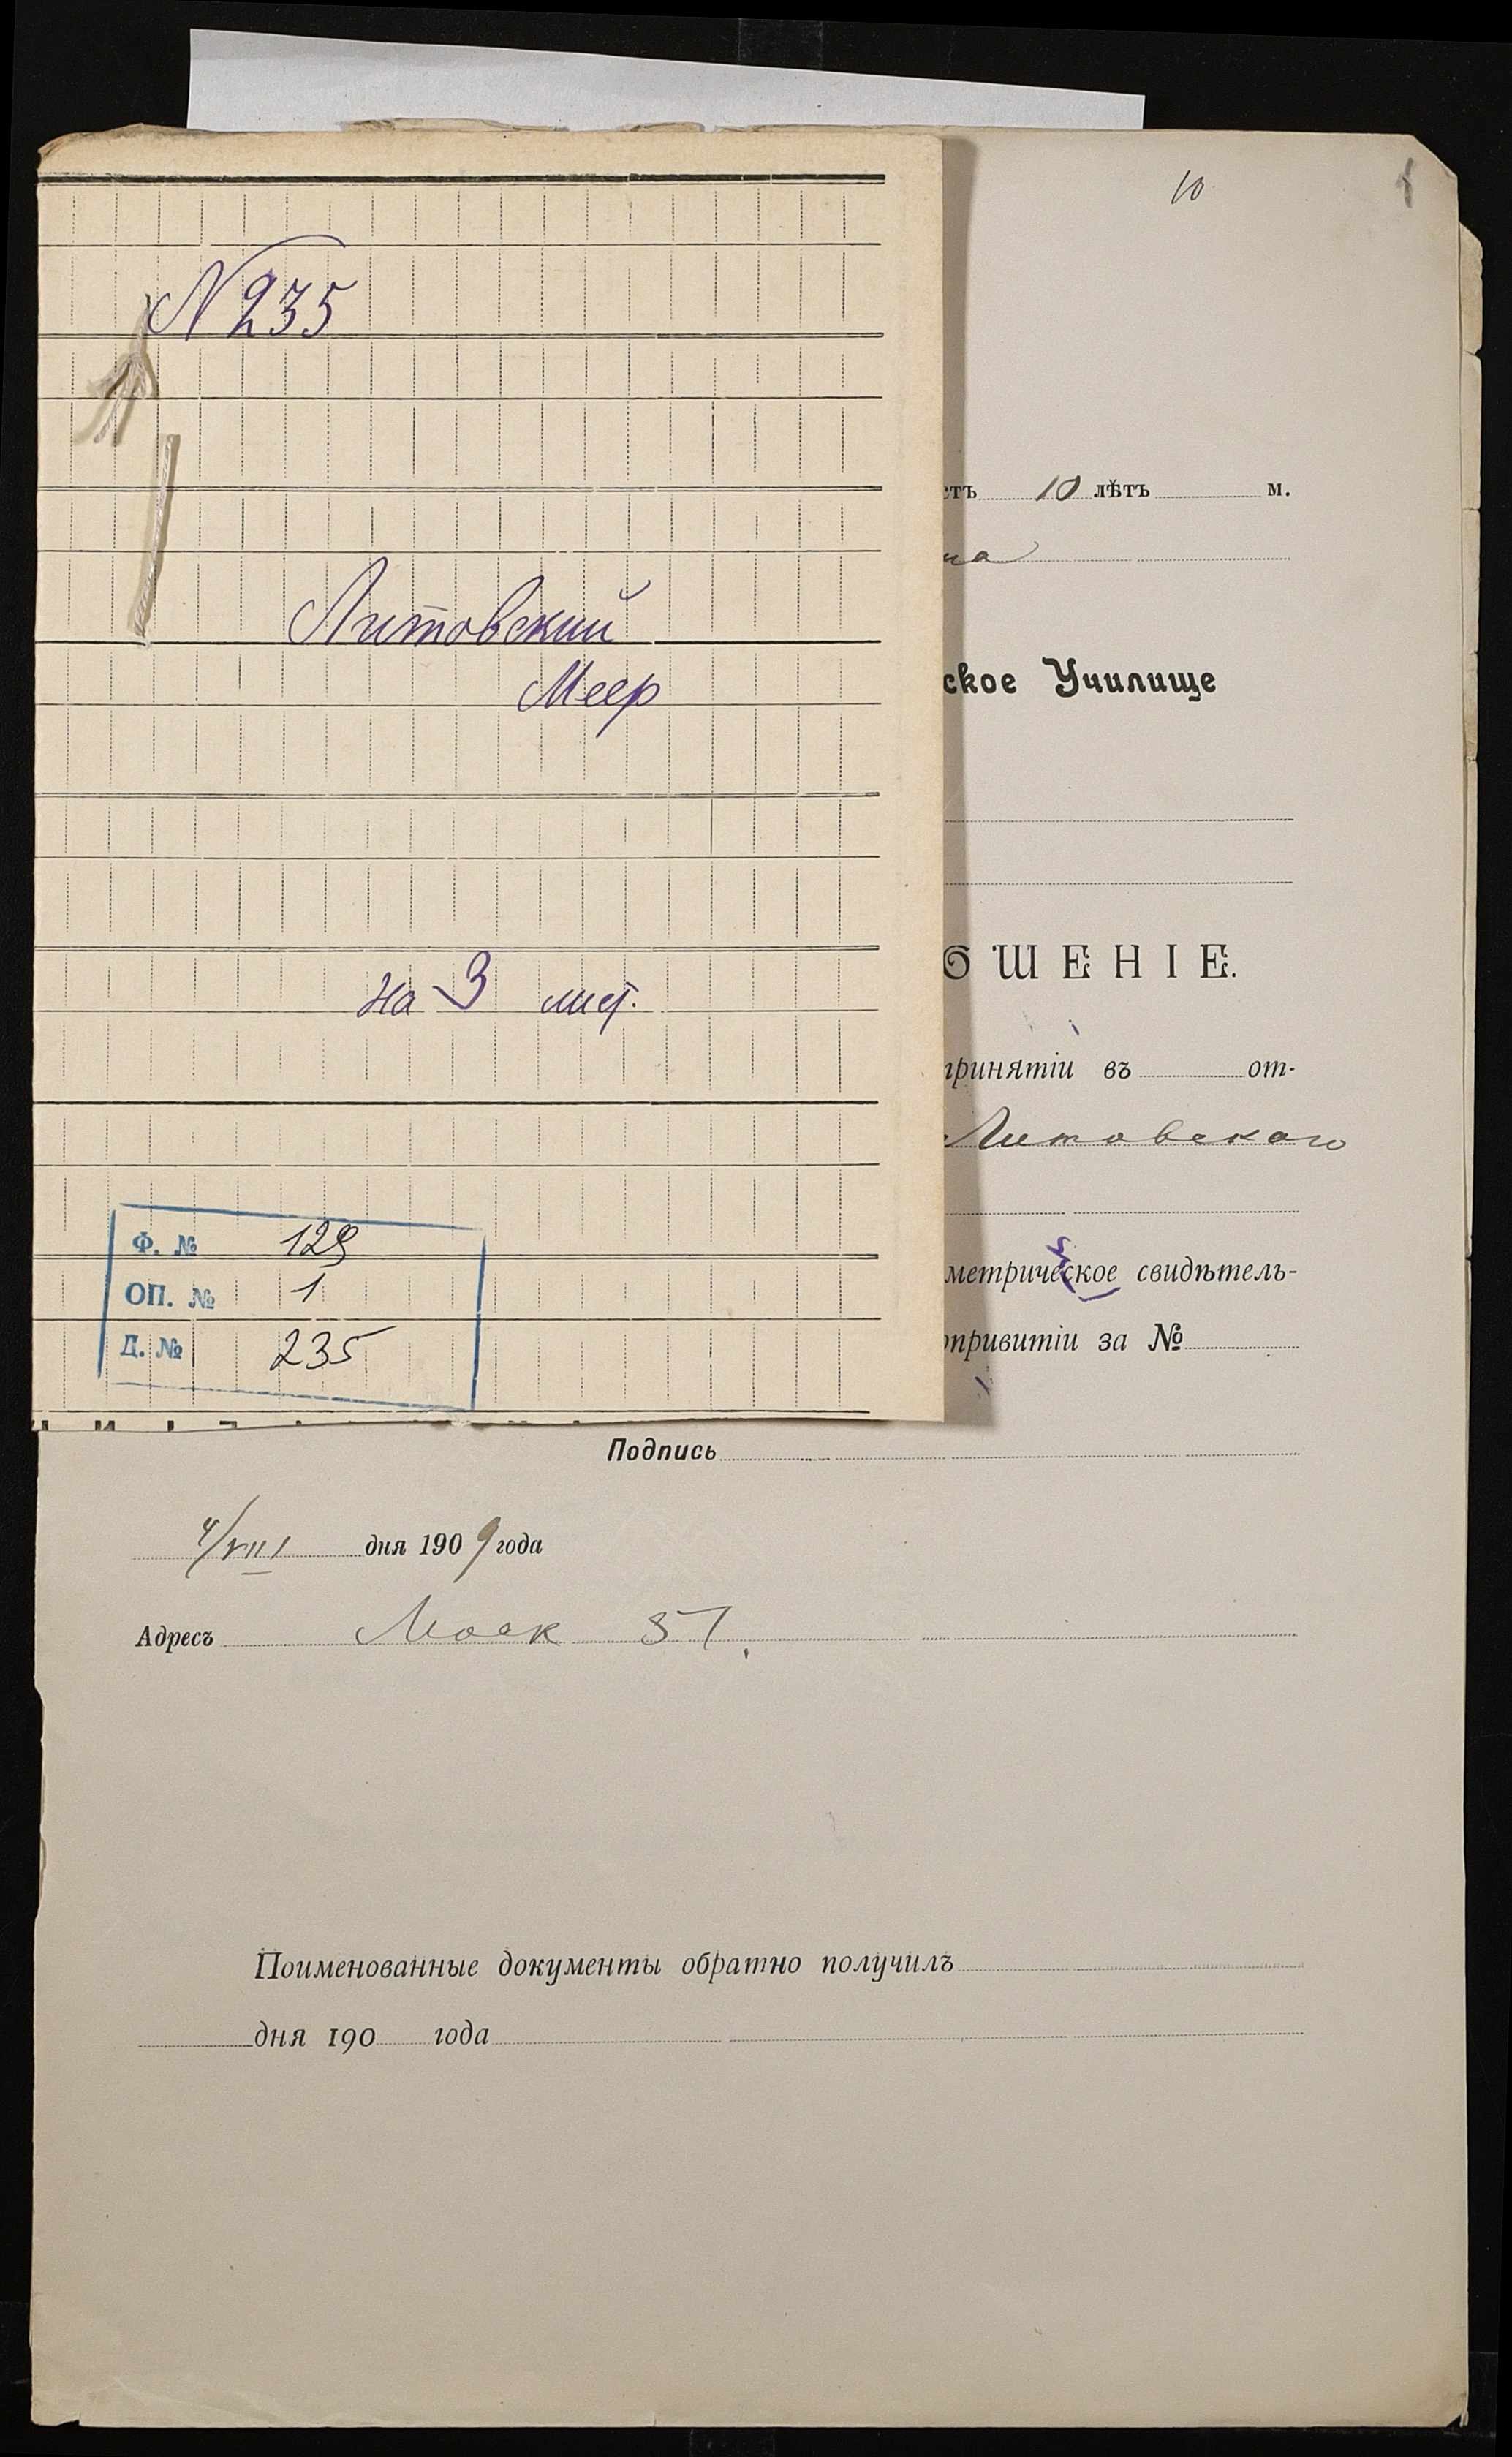 N 235
Литовский
Меер
на 3 лист.
Ф. № 129
ОП. № 1
Д. № 235
10
сть 10 лѣтъ м.
на
ское Училище
ОШЕНІЕ.
принятіи въ от-
Литовскаго
метрическое свидѣтель-
опривитіи за №
Подпись
4/VIII дня 1909 года
Адресъ Моск 57.
Поименованные документы обратно получилъ
дня 190 года